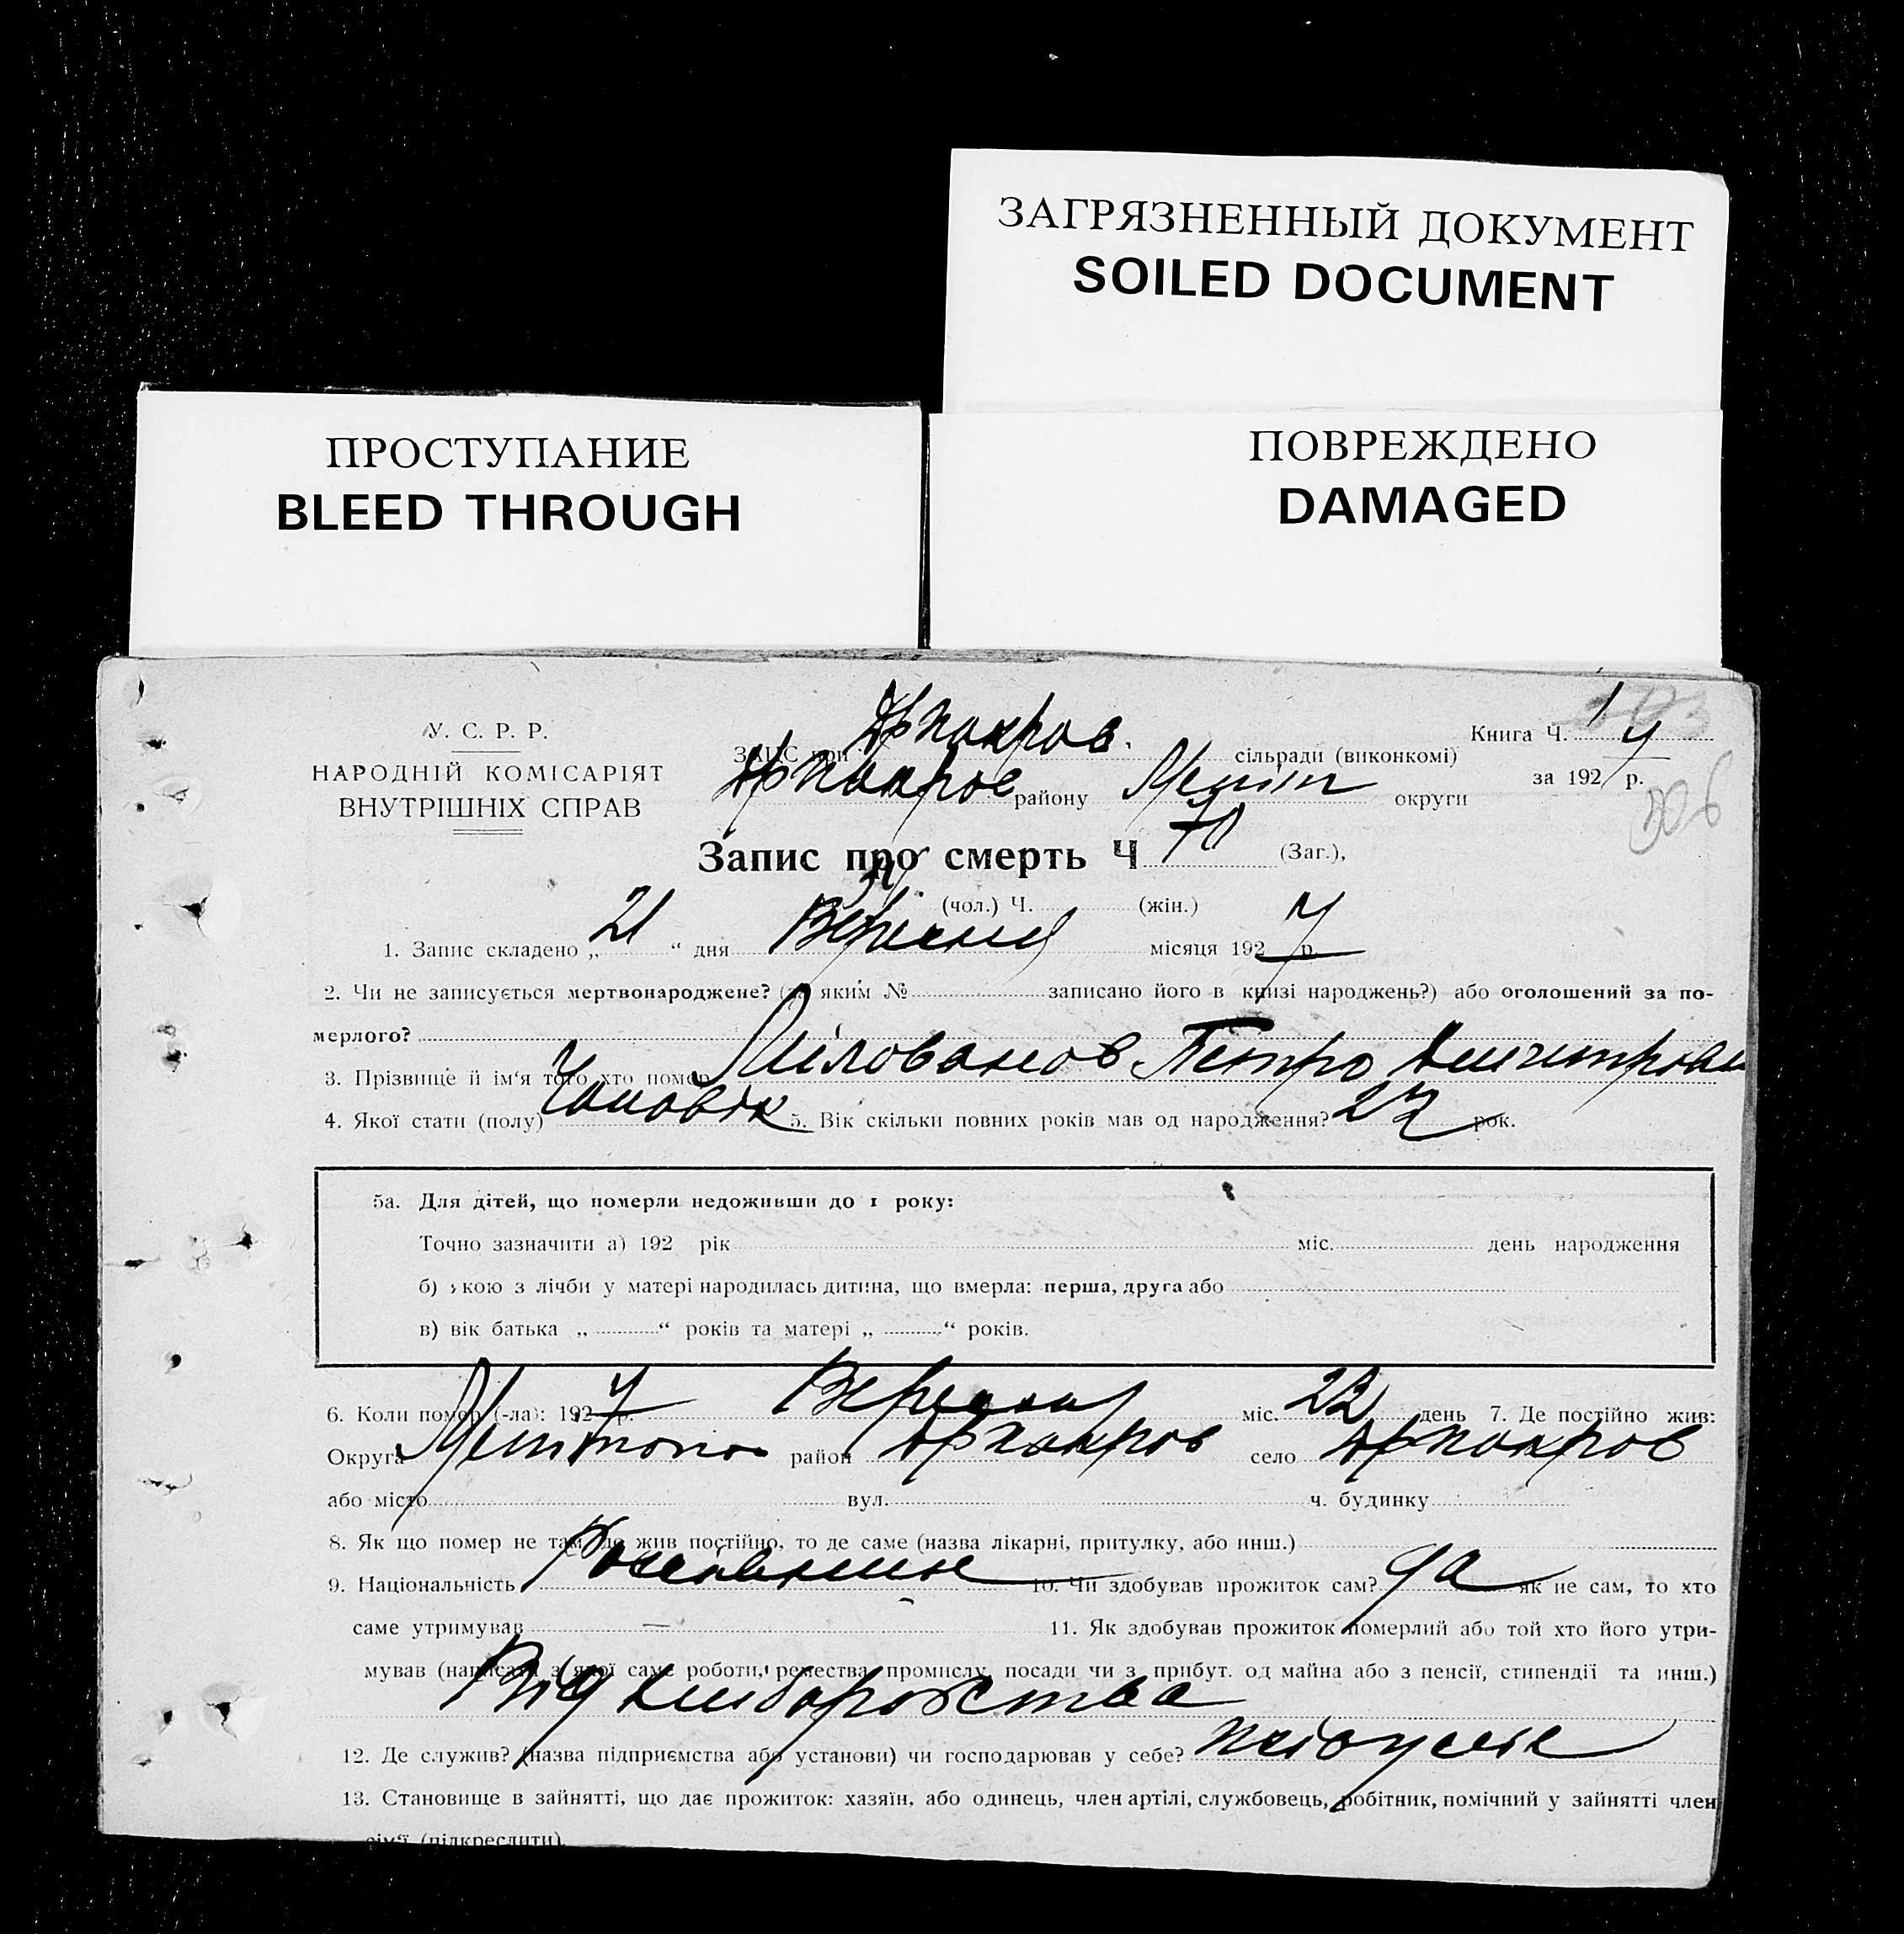 ЗАГРЯЗНЕННЫЙ ДОКУМЕНТ
SOILED DOCUMENT
ПРОСТУПАНИЕ
BLEED THROUGH
ПОВРЕЖДЕНО
DAMAGED
У. С. Р. Р.
НАРОДНІЙ КОМІСАРІЯТ
ВНУТРІШНІХ СПРАВ
ЗАПИС при сільради (виконкомі)
району округи
Книга Ч. 1
за 1927 р.
306
Запис про смерть Ч 70 (Заг.),
(чол.) Ч. (жін.)
1. Запис складено „ 21 “ дня Вересня місяця 1927 р.
2. Чи не записується мертвонароджене? яким № записано його в книзі народжень?) або оголошений за по-
мерлого?
3. Прізвище й ім'я того хто помер Міловано́в Петро
4. Якої стати (полу) Чоловік 5. Вік скільки повних років мав од народження? 27 рок.
5а. Для дітей, що померли недоживши до 1 року:
Точно зазначити а) 192 рік міс. день народження
б) якою з лічби у матері народилась дитина, що вмерла: перша, друга або
в) вік батька „ “ років та матері „ “ років.
6. Коли помер (-ла): 1927 р. Вересня міс. день 7. Де постійно жив:
Округа район село
або місто вул. ч. будинку
8. Як що помер не там де жив постійно, то де саме (назва лікарні, притулку, або инш.)
9. Національність 10. Чи здобував прожиток сам? да як не сам, то хто
саме утримував — 11. Як здобував прожиток померлий або той хто його утри-
мував (написати з якої саме роботи, ремества, промислу, посади чи з прибут. од майна або з пенсії, стипендії та инш.)
Від хліборобства
12. Де служив? (назва підприємства або установи) чи господарював у себе?
13. Становище в зайнятті, що дає прожиток: хазяїн, або одинець, член артілі, службовець, робітник, помічний у зайнятті член
сім'ї (підкреслити).